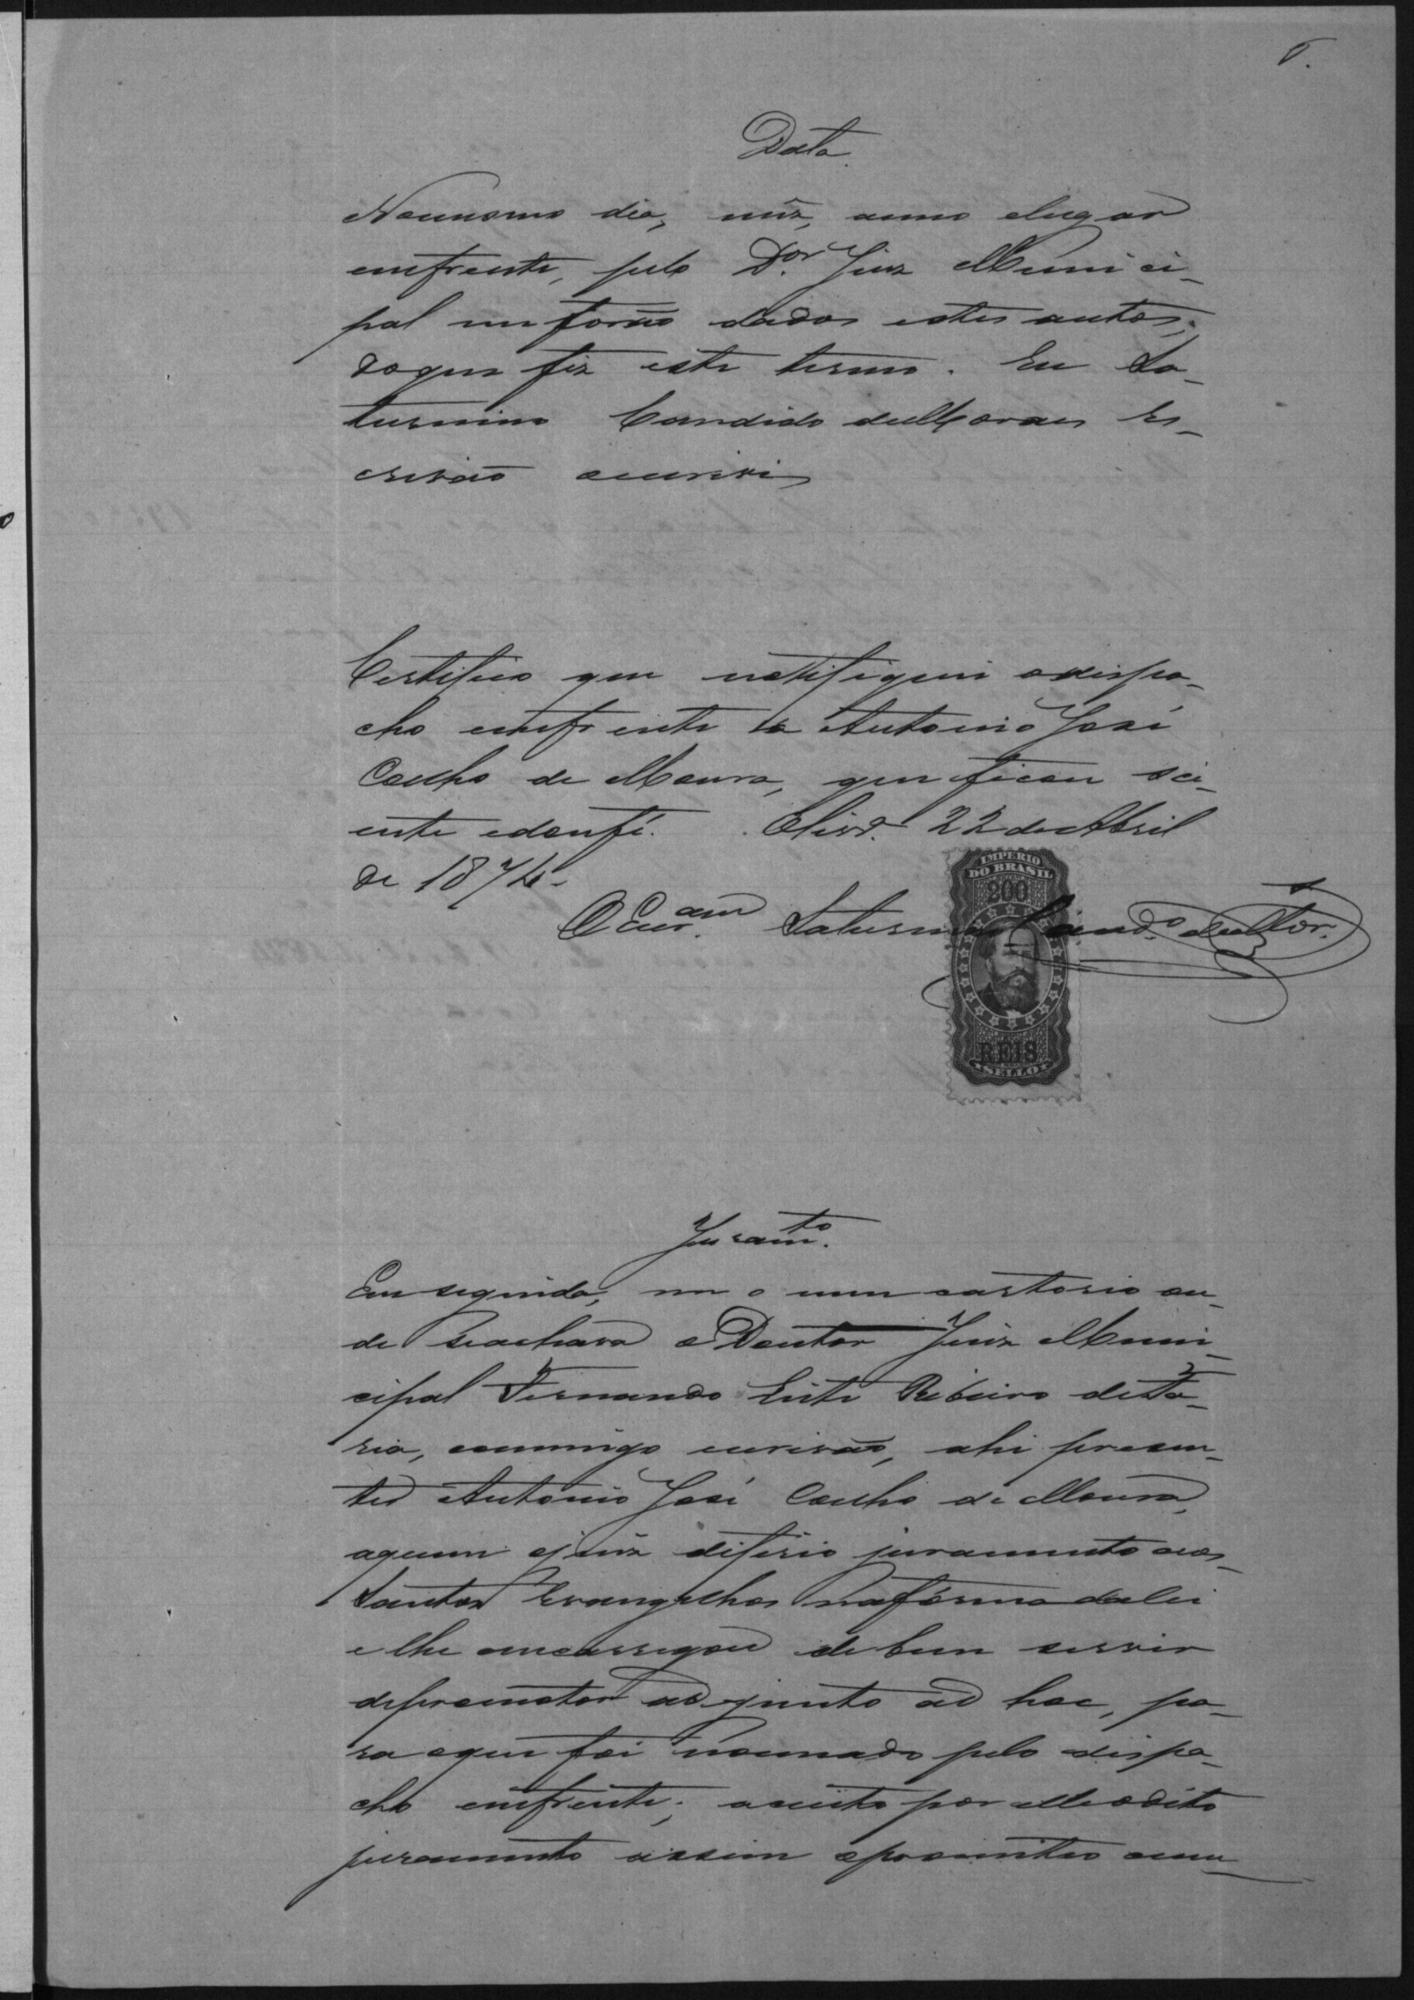 Data.
No mesmo dia, mêz, anno elugar
emfrente, pelo Dor. Juiz Munici-
pal me forão dados estes autos;
doque fiz este termo. Eu Sa-
turnino Candido deMoraes Es-
crivão escrivi
Certifico que notifiquei odespa-
cho emfrente a Antonio José
Coelho de Moura, que ficou sci-
ente edoufé. 22 de Abril
de 1874.
O Saturno Candº deMor.
IMPERIO
DO BRASIL
200
REIS
SELLO
Juramto.
Em seguida, em o meu cartorio on-
de seachava o Doutor Juiz Muni-
cipal Fernando Leite Ribeiro de
ria, commigo escrivão, ahi presen-
te Antonio José Coelho de Moura,
aquem ojuiz diferio juramento aos
Santos Evangelhos naforma dalei
e lhe encarregou de bem servir
depromotor adjunto ad hoc, pa-
ra oque foi nomeado pelo despa-
cho emfrente; aceito por elle odito
juramento assim oprometteo cum